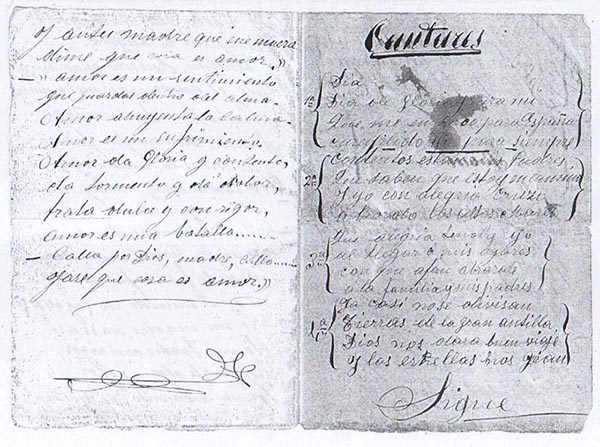 Y antes madre que me muera
dime que cosa es amor.»
— "amor es un sentimiento
que guardas dentro del alma
Amor ahuyenta la calma
Amor es un sufrimiento.
Amor da Gloria y contento,
da tormento y da dolor,
trata dulce y con rigor,
amor es una batalla......
— Calla por Dios, madre, calla
que cosa es amor.»
Cantares
1ª Dia de gloria para mi
Que me para España
cumplido para siempre
Contentos estan Padres
2ª Que saben que estoy en camino
Y yo con alegria
los altos mares
3ª Que alegria yo
al llegar a mis
con que afan abrazare
a la familia y mis padres
4ª Ya casi no se divisan
tierras de la gran antilla,
Dios nos dara buen viaje
Y las estrellas nos guian
Sigue